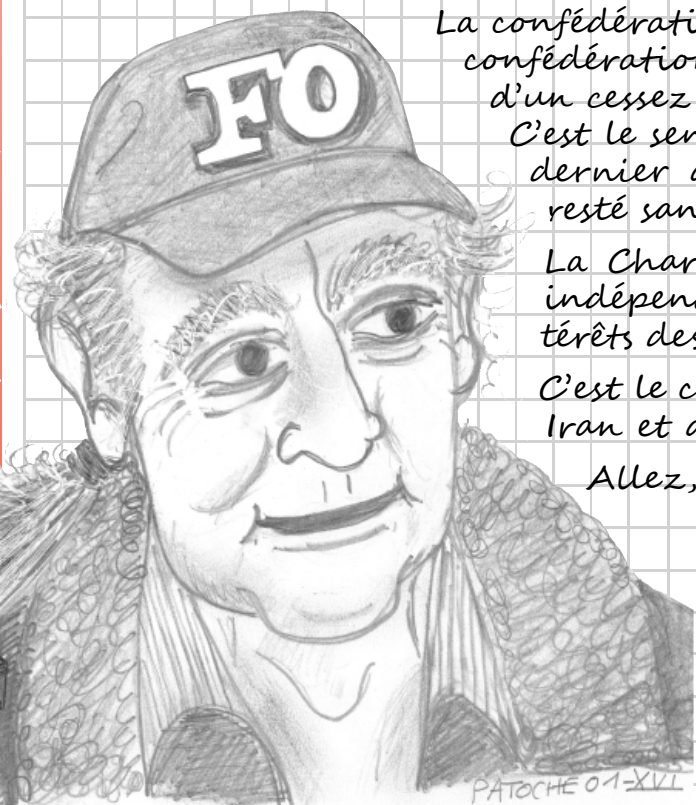 FO
La confédérati
confédération
d'un cessez
C'est le ser
dernier
resté san
La Char
indépen
térêts des
C'est le c
Iran et
Allez,
PATOCHE 01-XVI